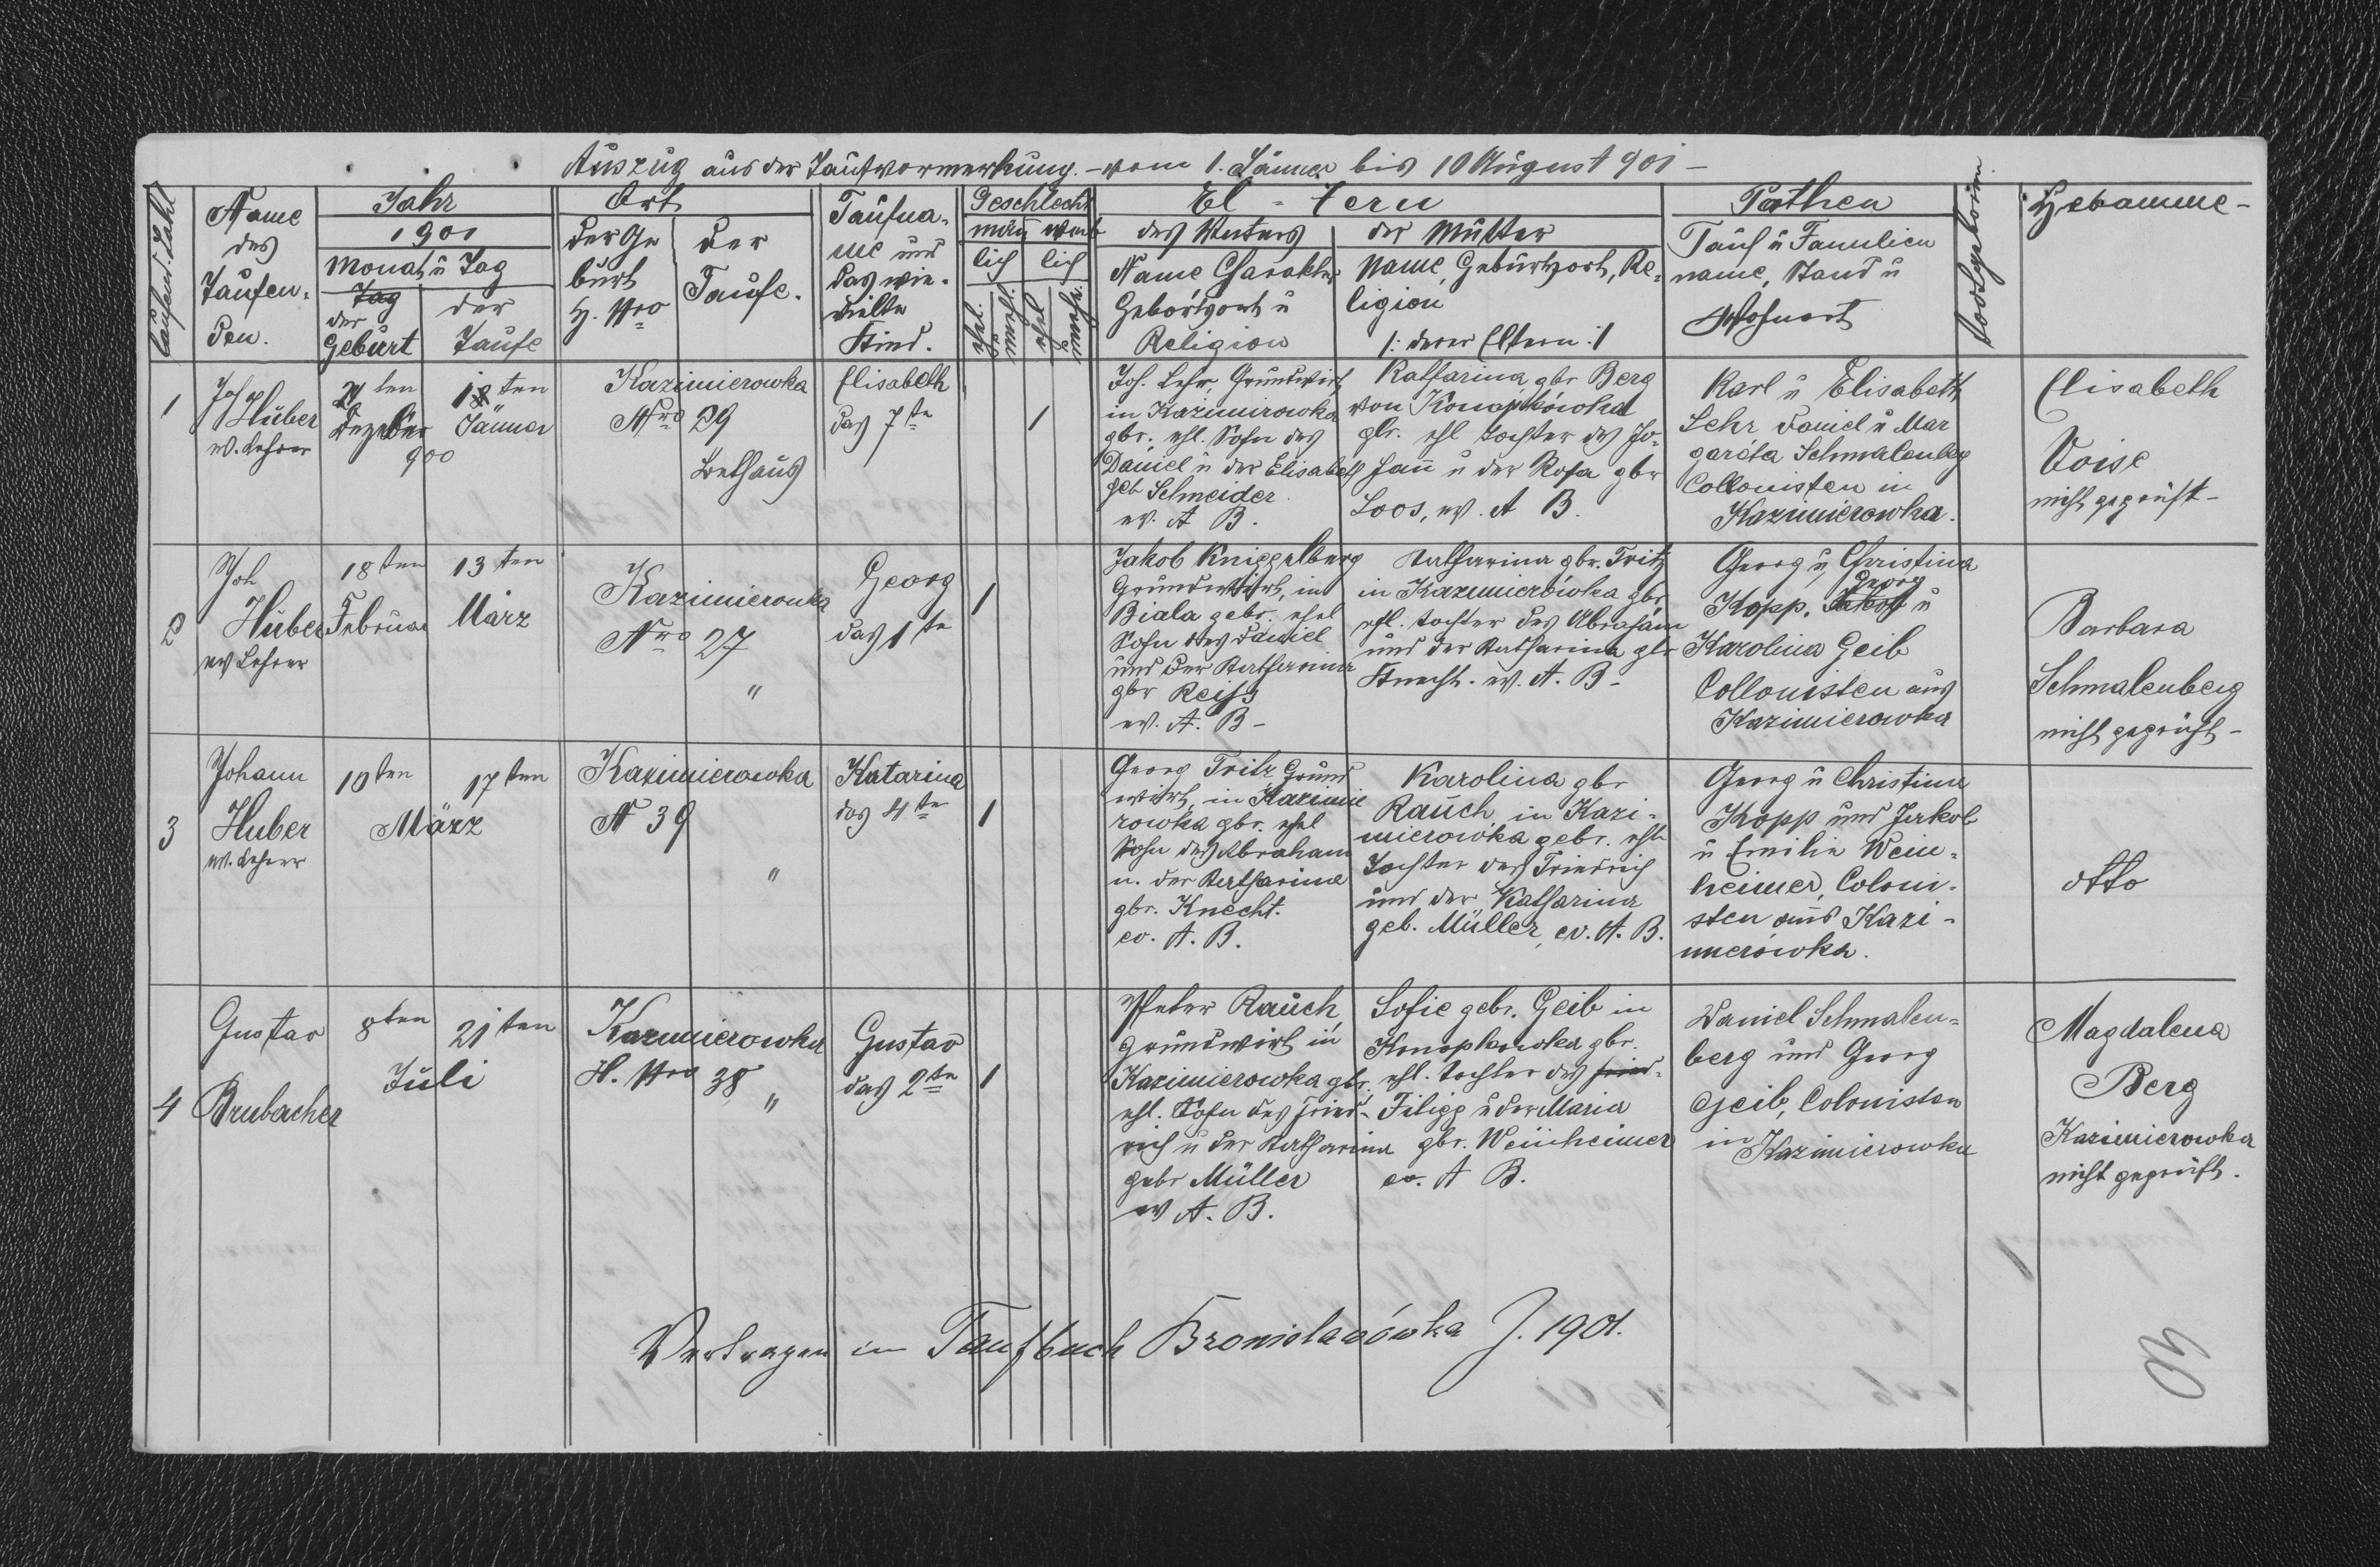 Auszug aus der Taufvormerkung. - vom 1. Jänner bis 10 August 901 -
Laufend. Zahl
Name
des
Taufen-
den.
Jahr
1901
Monat u Tag
Tag
der
Geburt
der
Taufe
Ort
der Ge
burt
H. Nro
der
Taufe.
Taufna-
me und
das wie-
vielte
Kind.
Geschlecht
män weib
lich lich
ehel.
unehl.
ehel
unehe.
El - tern
des Vaters
Name, Charakter
Geburtsort u
Religion
der Mutter
Name, Geburtsort, Re-
ligion
/: derer Eltern :/
Pathen
Tauf u Familien
name, Stand u
Wohnort
Todtgeboren
Hebamme-
1
Joh
Huber
ev. Lehrer
Dezeber
900
ten
Jänner
Kazimierowka
Nro 29
Bethaus
Elisabeth
das 7te
1
Joh. Lehr, Grundwirt
in Kazimirowka
gbr. ehl. Sohn des
Daniel u der Elisabeth
geb Schneider
ev. A B.
Katharina gbr Berg
von Konopkówka
gbr. ehl Tochter des Jo-
han u der Rosa gbr
Loos, ev. A B.
Karl u Elisabeth
Lehr Daniel u Mar
garéta Schmalenbeg
Collonisten in
Kazimierowka.
Elisabeth
Voise
nicht geprüft -
2
Joh
Huber
ev Lehrer
18ten
Februar
13ten
März
Kazimierowka
Nro 27
"
Georg
das 1te
1
Jakob Knippelberg
Grundwirt, in
Biala gebr. ehel
Sohn des Daniel
und der Katharina
gbr Reiss
ev. A. B -
Katharina gbr. Fritz
in Kazimierówka gbr
ehl. Tochter des Abraham
und der Katharina gbr
Knecht. ev. A. B -
Georg u Christina
Georg
Kopp, Jakob u
Karolina Geib
Collonisten aus
Kazimierowka
Barbara
Schmalenberg
nicht geprüft -
3
Johann
Huber
ev. Lehrer
10ten
17ten
März
Kazimierowka
N 39
"
Katarina
das 4te
1
Georg Fritz Grund
wirt, in Kazimie
rowka gbr. ehel
Sohn des Abraham
u. der Katharina
gbr. Knecht.
ev. A. B.
Karolina gbr
Rauch in Kazi-
mierowka gebr. ehl
Tochter des Friedrich
und der Katharina
geb. Müller, ev. A. B.
Georg u Christina
Kopp und Jakob
u Emilie Wein-
heimer, Coloni-
sten aus Kazi-
mierówka.
dtto
4
Gustav
Brubacher
8ten
21ten
Juli
Kazimierowka
H. Nro 38
"
Gustav
das 2te
1
Peter Rauch
Grundwirt in
Kazimierowka gbr.
ehl. Sohn des Fried-
rich u der Katharina
gebr Müller
ev A. B.
Sofie gebr. Geib in
Konopkowka gbr.
ehl. Tochter des Fried-
Filipp u der Maria
gbr. Weinheimer
ev. A B.
Daniel Schmalen-
berg und Georg
Geib, Colonisten
in Kazimierowka
Magdalena
Berg
Kazimierowka
nicht geprüft.
Vertragen im Taufbuch Bronislawówka J. 1901.